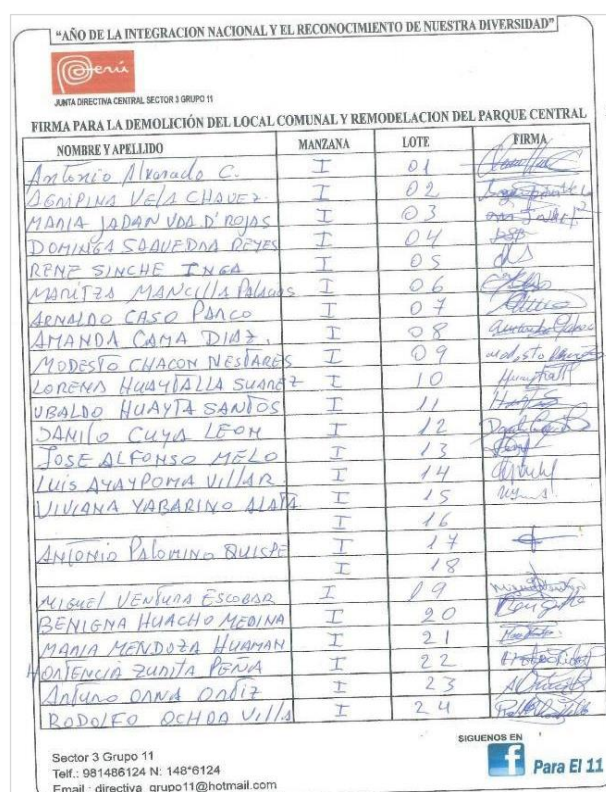 "AÑO DE LA INTEGRACION NACIONAL Y EL RECONOCIMIENTO DE NUESTRA DIVERSIDAD"
Perú
JUNTA DIRECTIVA CENTRAL SECTOR 3 GRUPO 11
FIRMA PARA LA DEMOLICIÓN DEL LOCAL COMUNAL Y REMODELACION DEL PARQUE CENTRAL
NOMBRE Y APELLIDO MANZANA LOTE FIRMA
Antonio Alvarado C. I 01
AGRIPINA VELA CHAVEZ. I 02
MARIA JADAN VDA D' ROJAS I 03
DOMINGA SAAVEDRA REYES I 04
RENE SINCHE INGA I 05
MARITZA MANCILLA Palacios I 06
ARNALDO CASO PARCO I 07
AMANDA CAMA DIAZ. I 08
MODESTO CHACON NESTARES I 09
LORENA HUAYTALLA SUAREZ I 10
UBALDO HUAYTA SANTOS I 11
DANILO CUYA LEON I 12
JOSE ALFONSO MELO I 13
LUIS AYAYPOMA VILLAR I 14
VIVIANA YABARINO ALATA I 15
I 16
ANTONIO PALOMINO QUISPE I 17
I 18
MIGUEL VENTURA ESCOBAR I 19
BENIGNA HUACHO MEDINA I 20
MARIA MENDOZA HUAMAN I 21
HORTENCIA ZURITA PEÑA I 22
Arturo I 23
RODOLFO OCHOA Villa I 24
Sector 3 Grupo 11
Telf.: 981486124 N: 148*6124
Email : directiva_grupo11@hotmail.com
SIGUENOS EN
f Para El 11